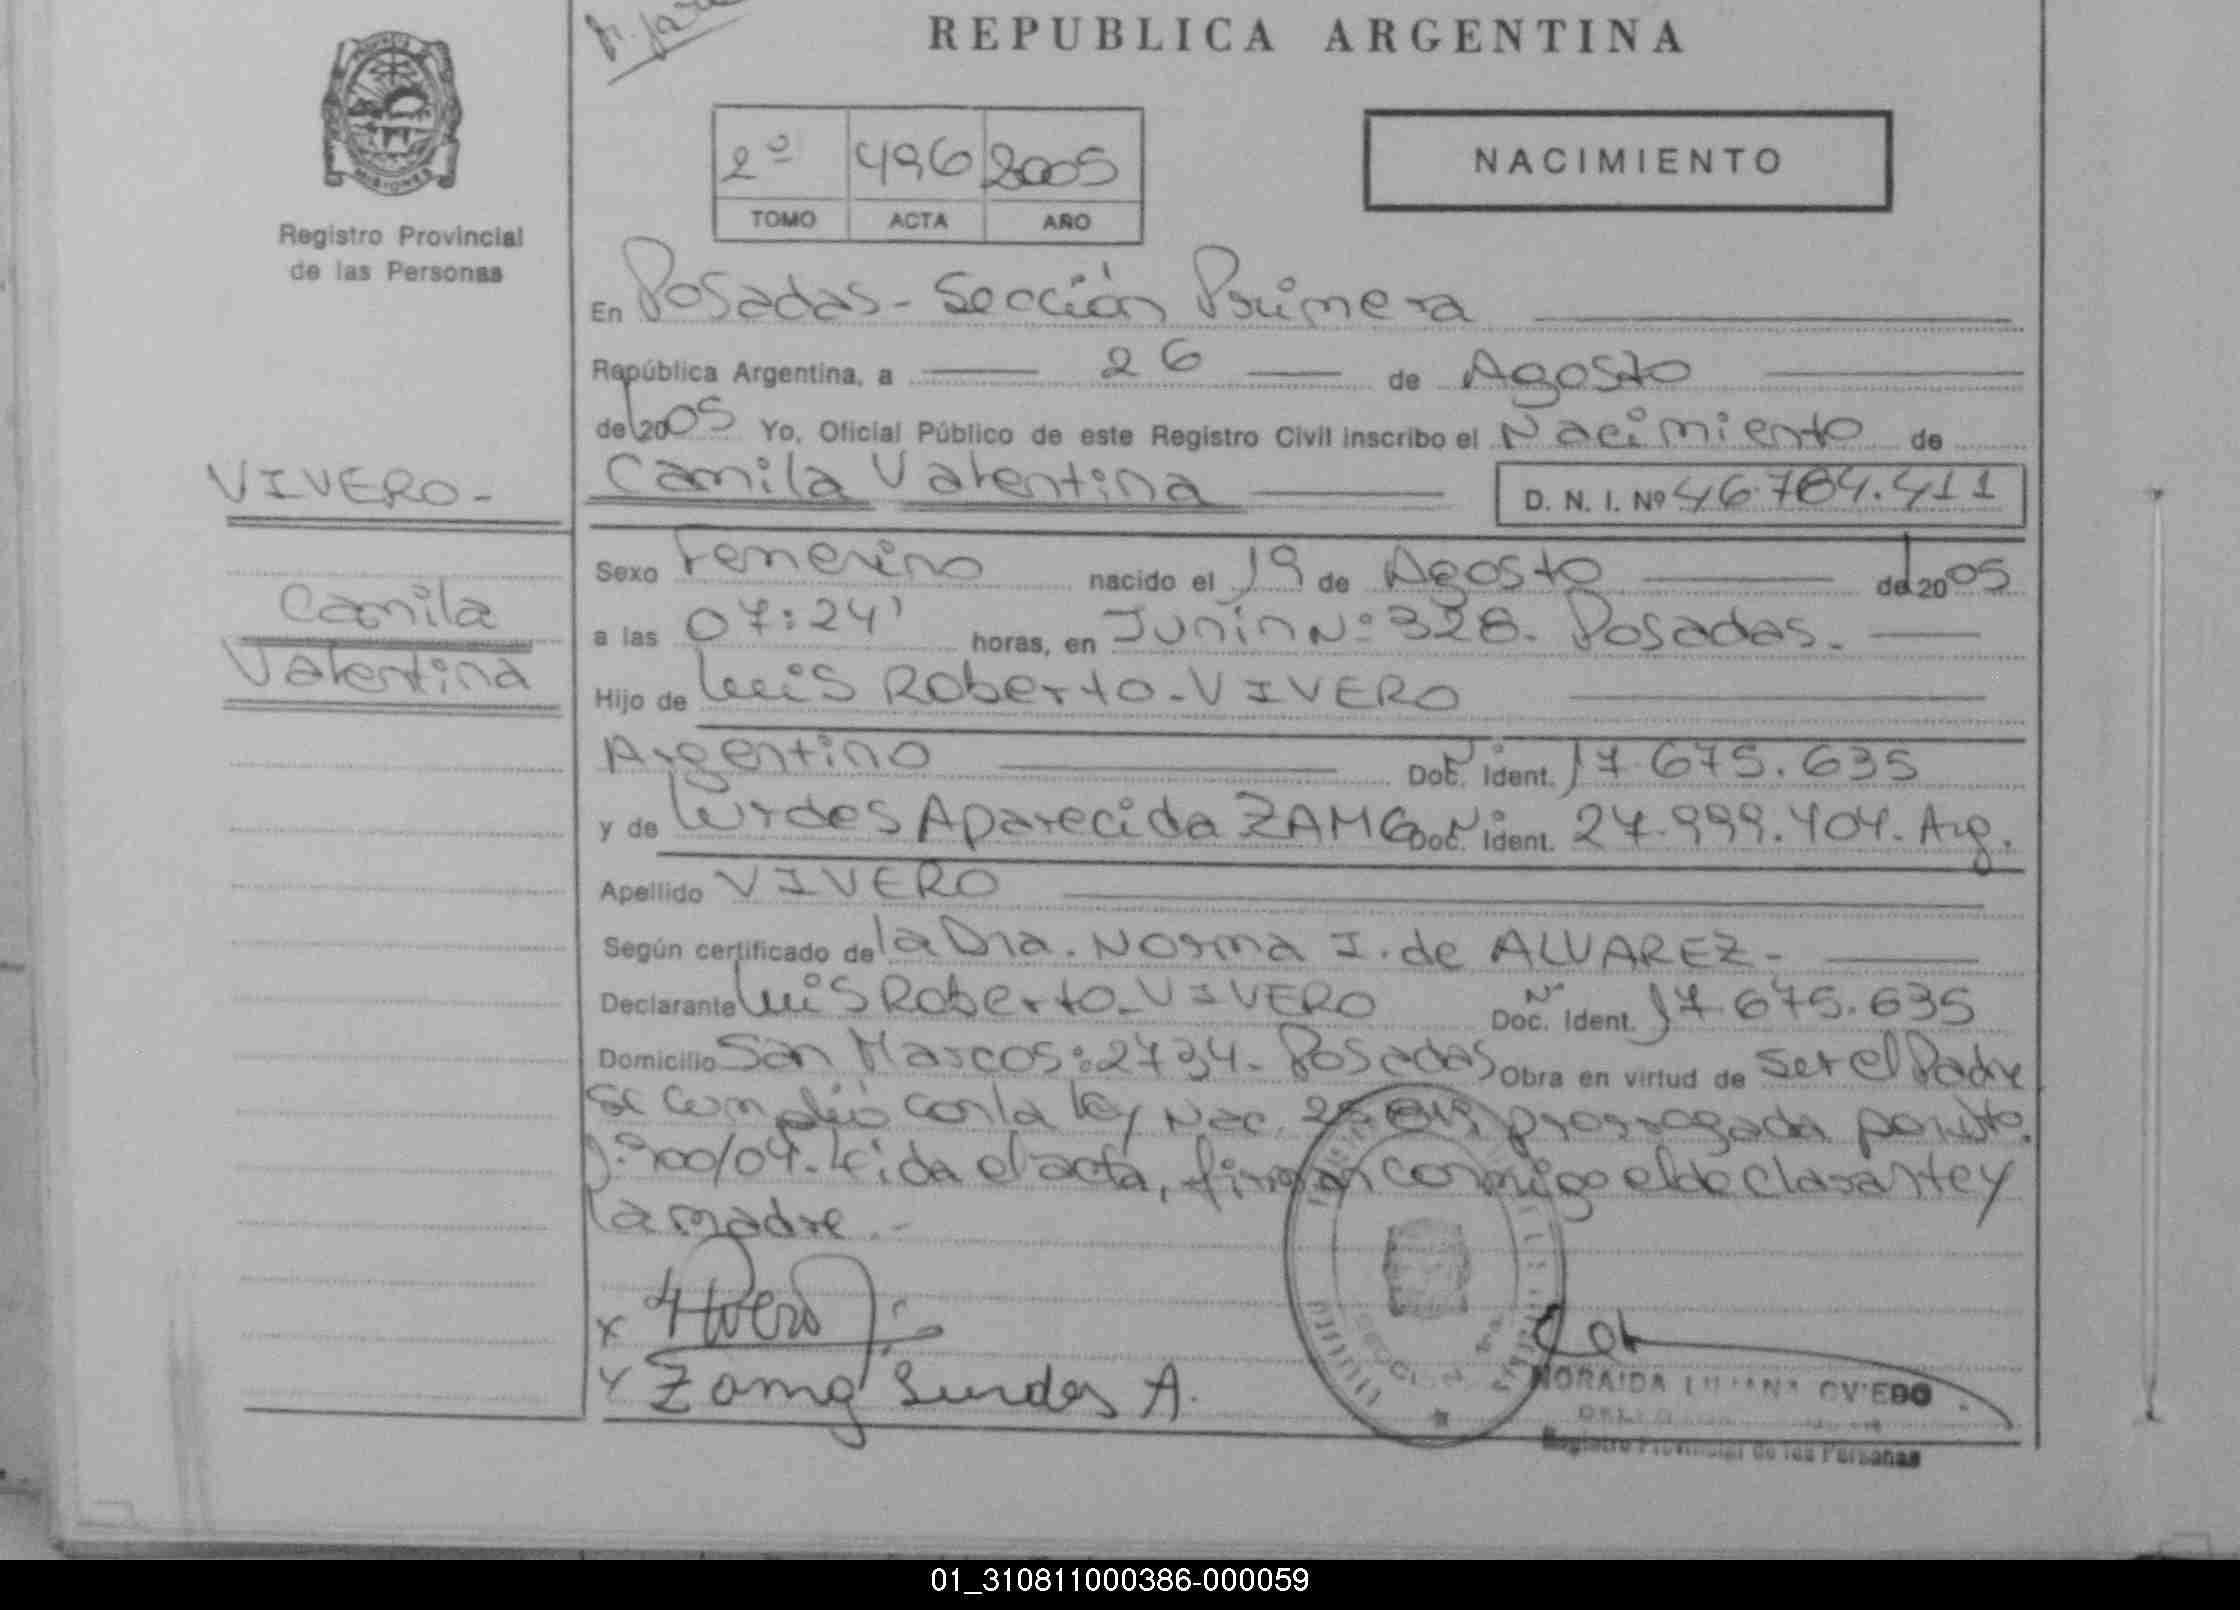 REPUBLICA ARGENTINA
MISIONES
Registro Provincial
de las Personas
2º 496 2005
TOMO ACTA AÑO
NACIMIENTO
En Posadas - Sección Primera
República Argentina, a 26 de Agosto
de 2005 Yo, Oficial Público de este Registro Civil inscribo el Nacimiento de
VIVERO -
Camila Valentina D. N. I. Nº 46.784.411
Camila
Valentina
Sexo Femenino nacido el 19 de Agosto de 2005
a las 07:24' horas, en Junín Nº: 328. Posadas.
Hijo de Luis Roberto - VIVERO
Argentino Doc. Ident. Nº 17.675.635
y de Lurdes Aparecida ZAMG Doc. Ident. Nº 27.999.404. Arg.
Apellido VIVERO
Según certificado de la Dra. Norma I. de ALVAREZ -
Declarante Luis Roberto - VIVERO Doc. Ident. Nº 17.675.635
Domicilio San Marcos: 2734. Posadas Obra en virtud de ser el Padre
se cumplió con la ley Nac. prorrogada por
Leida el acta, firman conmigo el declarante y
la madre. -
x
Zamg Lurdes A.
NORAIDA LILIANA OVIEDO
Registro Provincial de las Personas
01_310811000386-000059